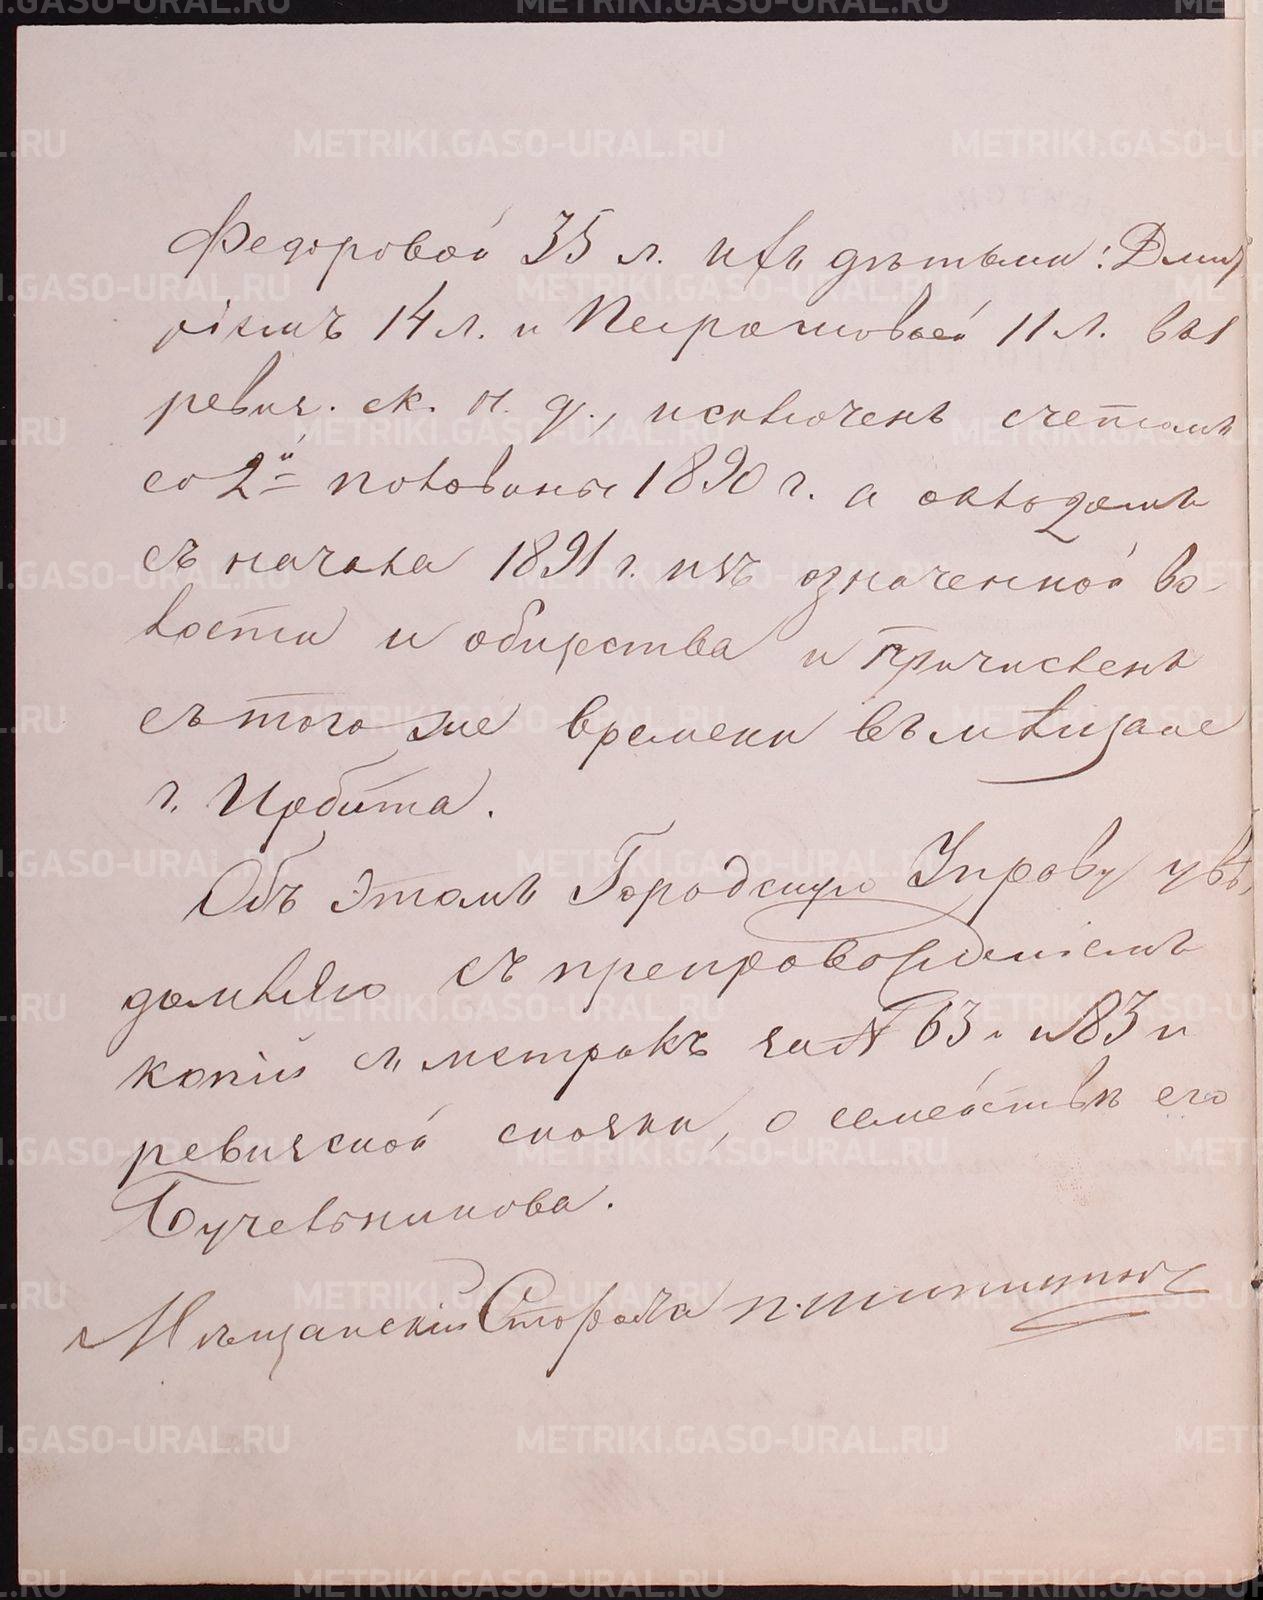 Федоровой 35 л. и съ дѣтьми: Дмит
ріемъ 14 л. и 11 л. въ
ревиз. ск. н. д., исключенъ счетомъ
со 2й половины 1890 г. а окладомъ
съ начала 1891 г. изъ означенной во-
лости и общества и причисленъ
съ того же времени въ мѣщане
г. Ирбита.
Объ этомъ Городскую Управу увѣ
домляю съ препровожденіемъ
копій съ метрикъ за № 63 и 83 и
ревизской сказки, о семействѣ его
Бучельникова.
Мѣщанскій Староста
METRIKI.GASO-URAL.RU